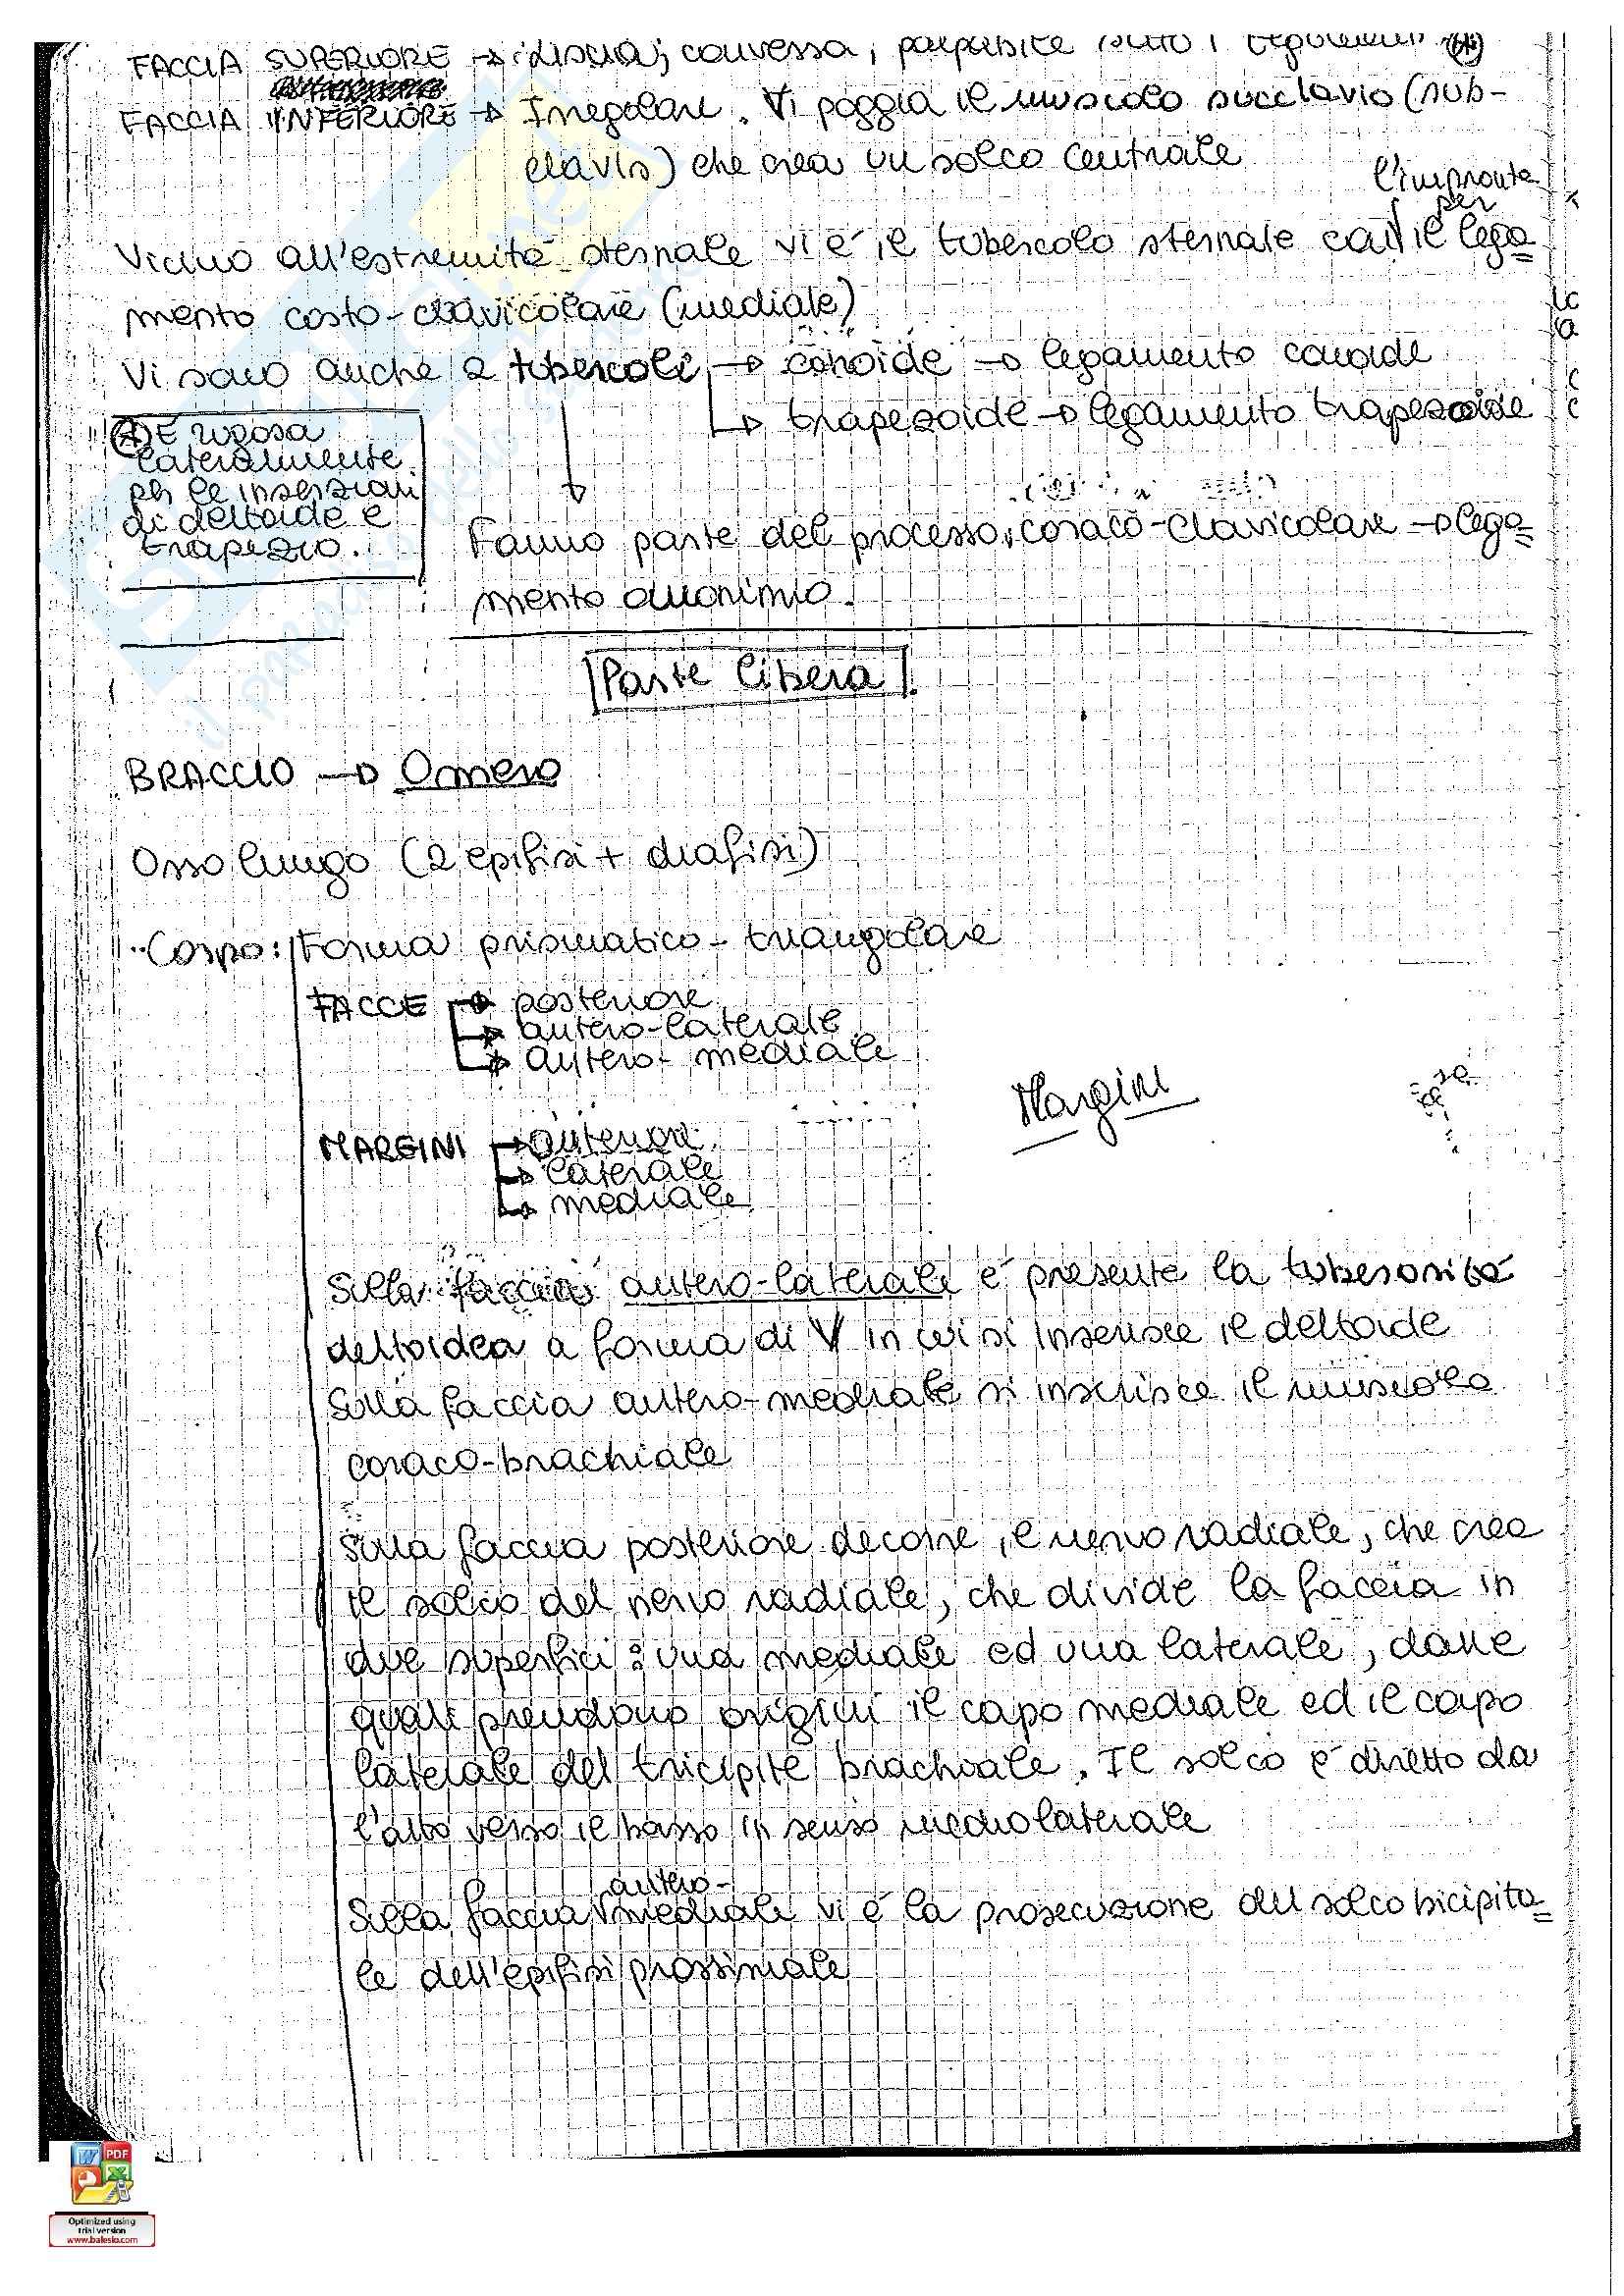 FACCIA SUPERIORE → liscia, convessa, palpabile sotto i tegumenti (*)
FACCIA INFERIORE → Irregolare. Vi poggia il muscolo succlavio (sub-
clavis) che crea un solco centrale
l'impronta
per
Vicino all'estremità sternale vi è il tubercolo sternale con il lega=
mento costo-clavicolare (mediale)
Vi sono anche 2 tubercoli → conoide → legamento conoide
→ trapezoide → legamento trapezoide
(*) È rugosa
lateralmente
per le inserzioni
di deltoide e
trapezio.
Fanno parte del processo coraco-clavicolare → lega=
mento omonimo.
Parte libera
BRACCIO → Omero
Osso lungo (2 epifisi + diafisi)
Corpo: Forma prismatico-triangolare
FACCE → posteriore
→ antero-laterale
→ antero-mediale
Margini
MARGINI → anteriore
→ laterale
→ mediale
Sulla faccia antero-laterale è presente la tuberosità
deltoidea a forma di V in cui si inserisce il deltoide
Sulla faccia antero-mediale si inserisce il muscolo
coraco-brachiale
Sulla faccia posteriore decorre il nervo radiale, che crea
il solco del nervo radiale, che divide la faccia in
due superfici: una mediale ed una laterale, dalle
quali prendono origini il capo mediale ed il capo
laterale del tricipite brachiale. Il solco è diretto da
l'alto verso il basso in senso mediolaterale
antero-
Sulla faccia mediale vi è la prosecuzione del solco bicipita=
le dell'epifisi prossimale
Optimized using
trial version
www.balesio.com